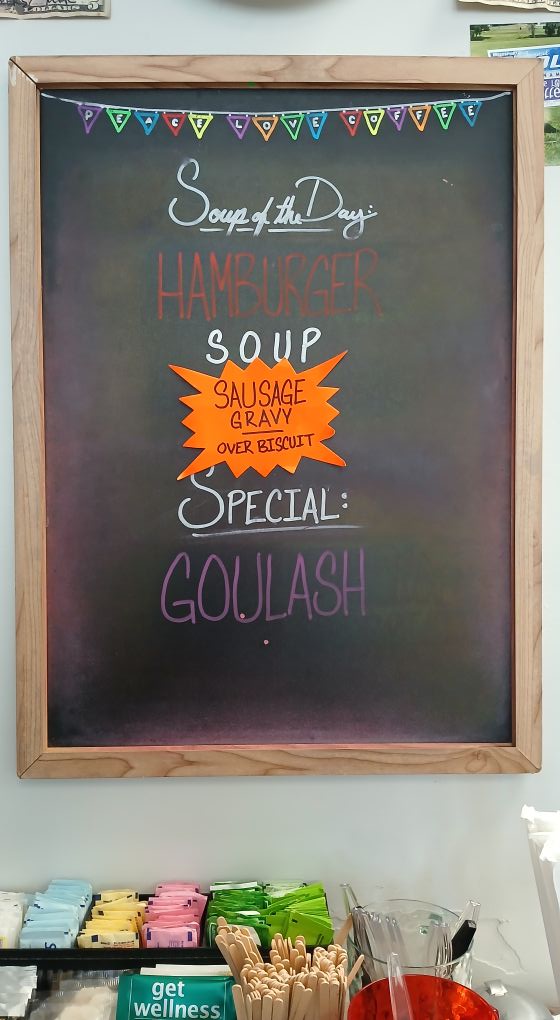 PEACE LOVE COFFEE
Soup of the Day:
HAMBURGER
SOUP
SAUSAGE
GRAVY
OVER BISCUIT
SPECIAL:
GOULASH
get
wellness